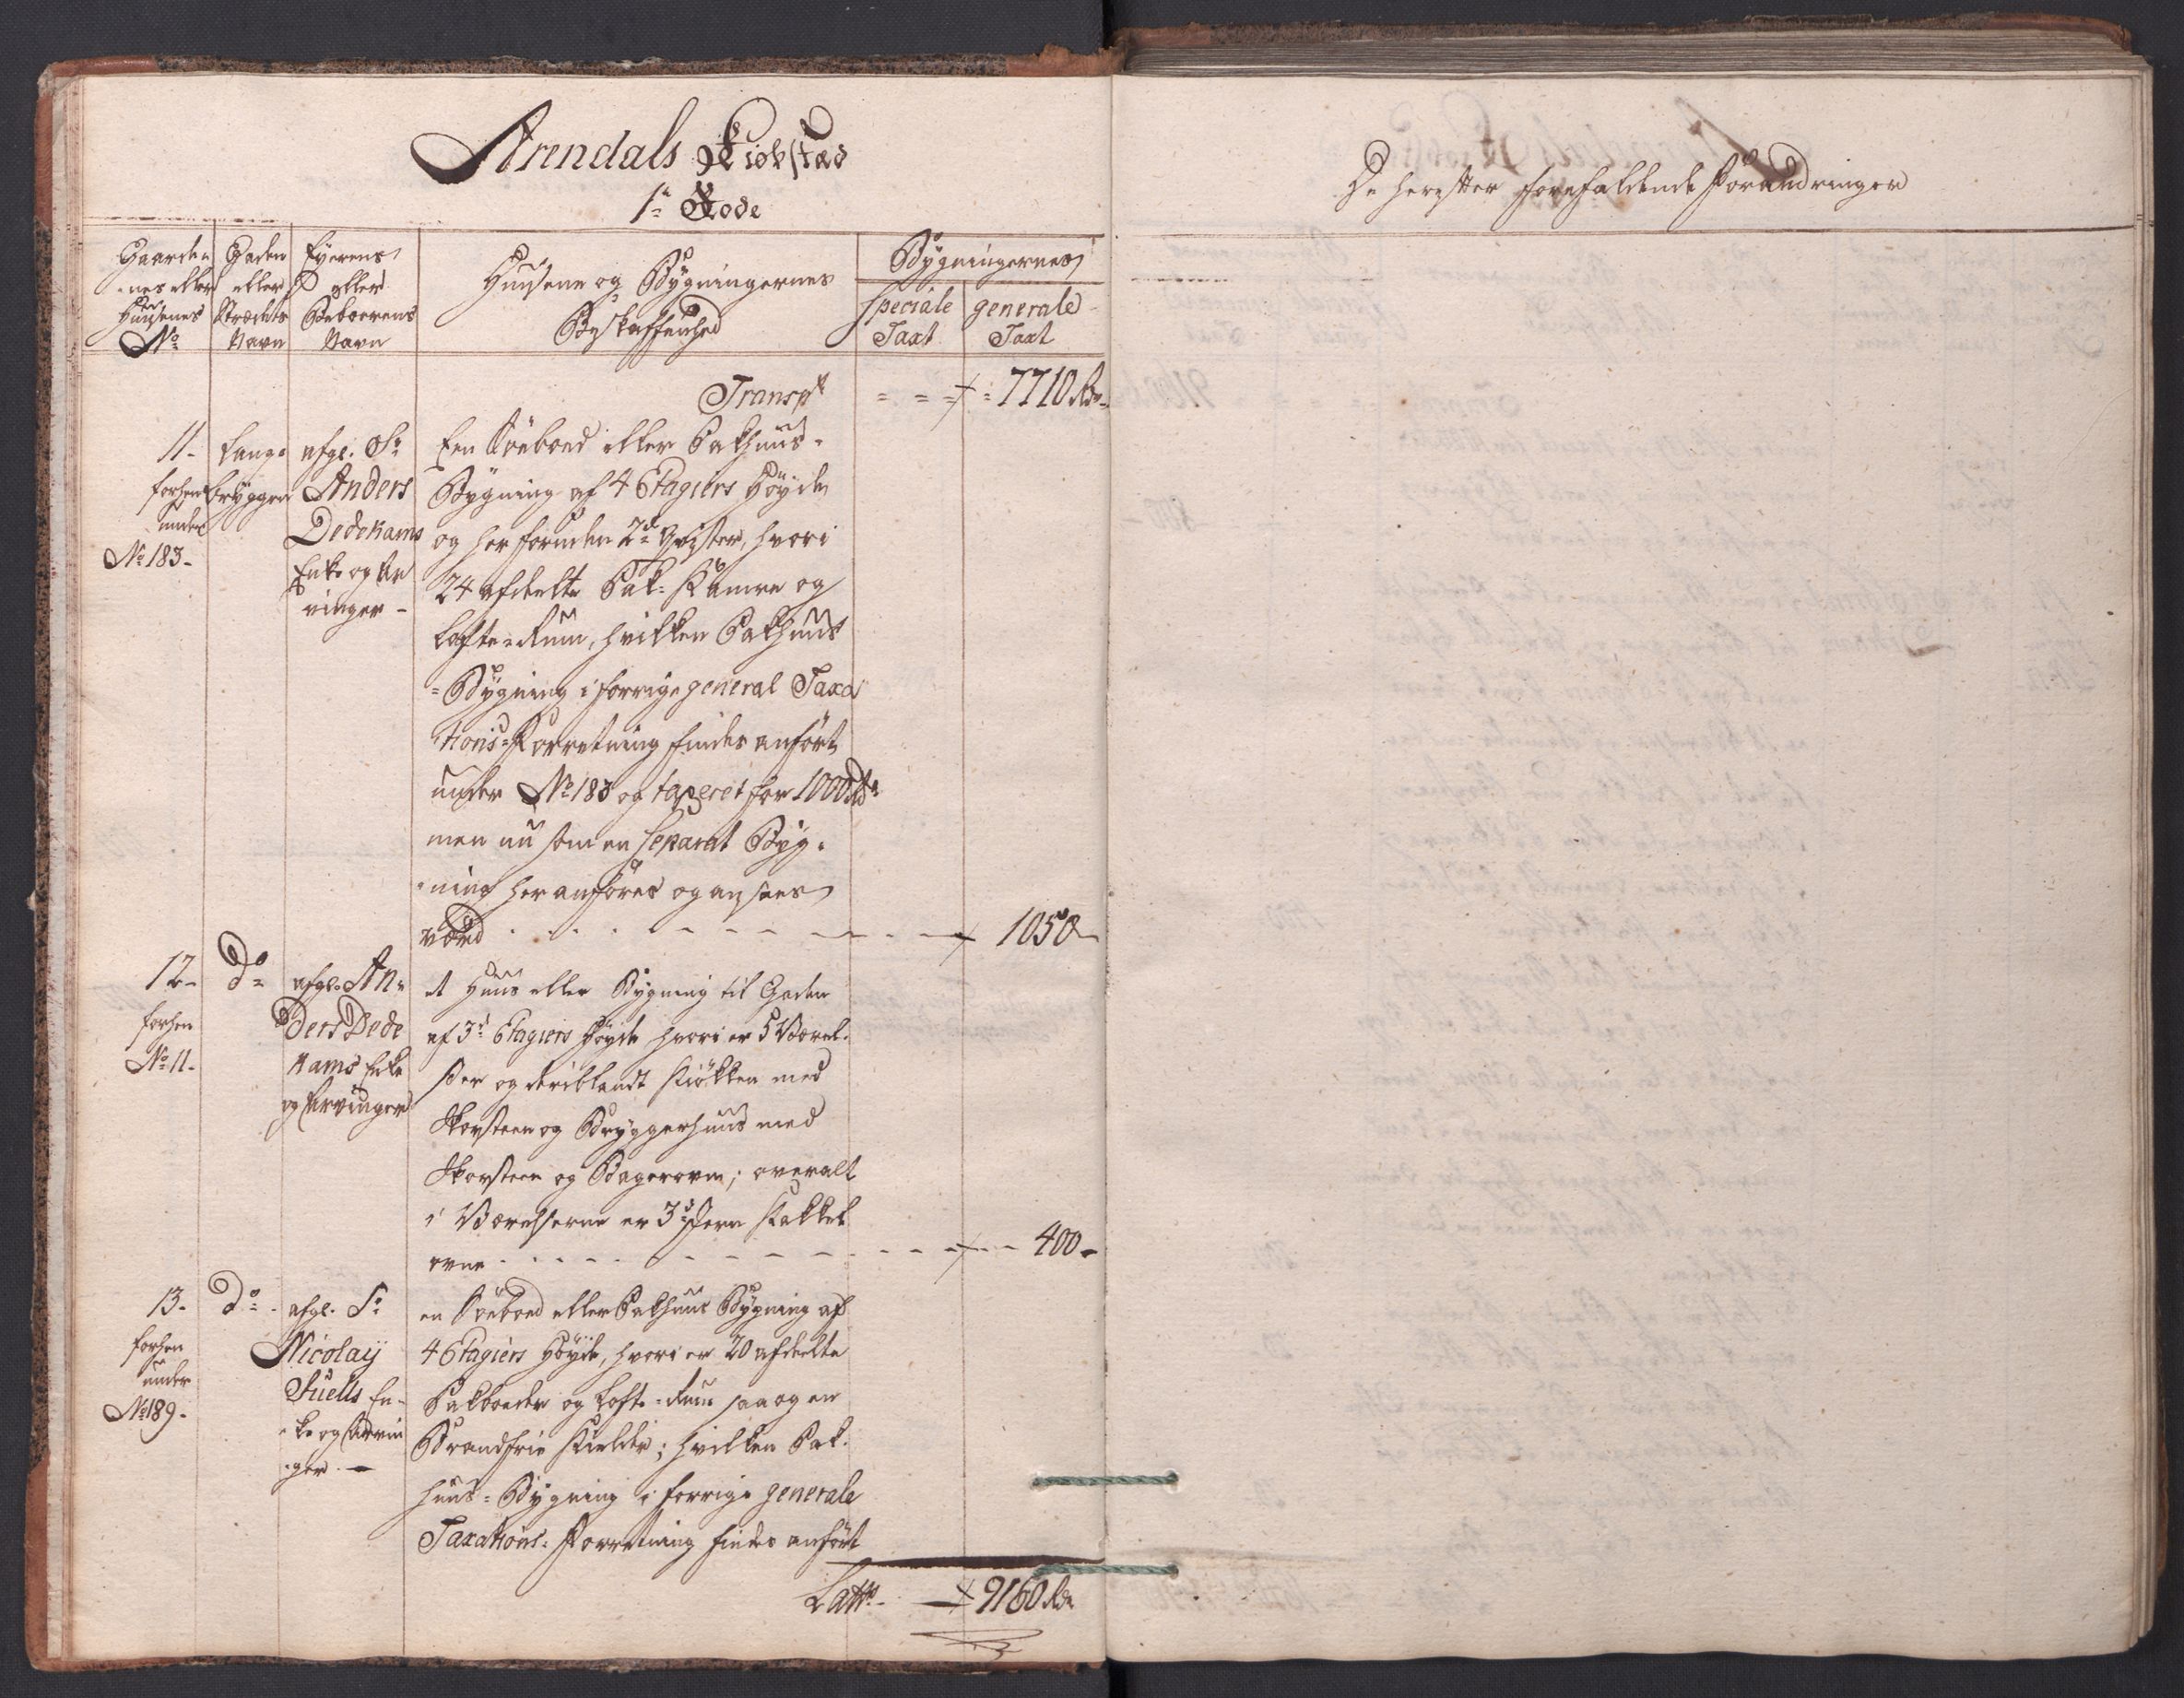 Arendals Kiøbstæd
1te Rode
Gaarde-
nes eller
Huusenes
No
Gaden
eller
Strædets
Navn
Eyerens
eller
Beboerens
Navn
Huusene og Bygningernes
Beskaffenhed
Bygningernes
speciale
Taxt
generale
Taxt
Transpt = = = 7710 Rdr
11-
forhen
under
No 183-
Lange
bryggen
afgl. Sr
Anders
Dedekams
Enke og Ar
vinger -
Een Søeboed eller Pakhuus-
Bygning af 4 Etagiers Høyde
og her foruden 2de Qvister, hvori
24 afdeelte Pak-Kamre og
Lofte-Rum, hvilken Pakhuus
-Bygning i forrige general Taxa
tions-Forretning findes anført
under No 183 og taxeret for 1000 Rdr
men nu som en separat Byg-
-ning her anføres og ansees
værd - - - 1050-
12-
forhen
No 11-
Do
afgl. An-
ders Dede
kams Enke
og Arvinger
et Huus eller Bygning til Gaden
af 3de Etagiers Høyde hvori er 5 Værel-
ser og deriblandt Kiøkken med
Skorsteen og Bryggerhuus med
Skorsteen og Bagerovn; overalt
i Værelserne er 3de Jern Kakkel
ovne - - - 400-
13-
forhen
under
No 189-
Do -
afgl. Sr
Nicolaij
Tuells En-
-ke og Arvin
-ger -
en Søeboed eller Pakhuus Bygning af
4 Etagiers Høyde, hvori er 20 afdeelte
Pakboeder og Lofte-Rum saa og en
Brandfrie Kielder; hvilken Pak-
huus-Bygning i forrige generale
Taxations-Forretning findes anført
Latts - 9160 Rdr
De herefter forefaldende Forandringer